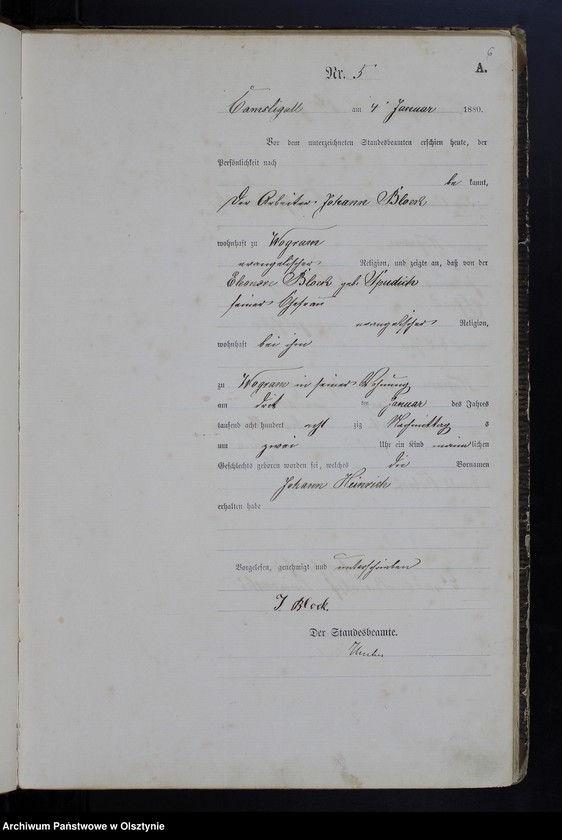 6
Nr. 5
A.
Camstigall am 4 Januar 1880.
Vor dem unterzeichneten Standesbeamten erschien heute, der
Persönlichkeit nach
be kannt,
der Arbeiter Johann Block
wohnhaft zu Wogram
evangelischer Religion, und zeigte an, daß von der
Eleonore Block geb. Spudich
seiner Ehefrau
evangelischer Religion,
wohnhaft bei ihm
zu Wogram in seiner Wohnung
am drit ten Januar des Jahres
tausend acht hundert acht zig Nachmittag s
um zwei Uhr ein Kind männ lichen
Geschlechts geboren worden sei, welches die Vornamen
Johann Heinrich
erhalten habe
Vorgelesen, genehmigt und unterschrieben
J Block.
Der Standesbeamte.
Archiwum Państwowe w Olsztynie